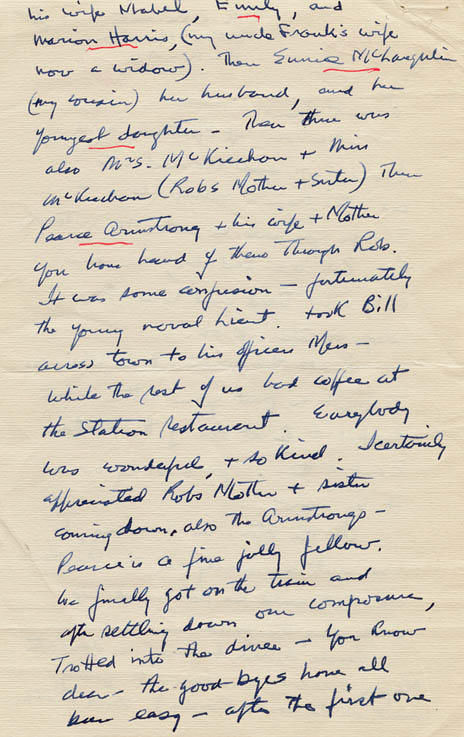 his wife Mabel, Emily, and
Marion Harris, (my uncle Frank's wife
now a widow). Then Eunice McLaughlin
(my cousin) her husband, and her
youngest daughter - Then there was
also Mrs. McKiechan + Miss
McKiechan (Robs Mother + Sister) Then
Pearce Armstrong + his wife + Mother
You have heard of them through Rob.
It was some confusion - fortunately
the young naval Lieut. took Bill
across town to his officers Mess -
while the rest of us had coffee at
the Station restaurant. Everybody
was wonderful, + so kind. I certainly
appreciated Robs Mother + sister
coming down, also the Armstrongs -
Pearce is a fine jolly fellow.
We finally got on the train and
after settling down our composure,
Trotted into the diner - You know
dear - the good-byes have all
been easy - after the first one